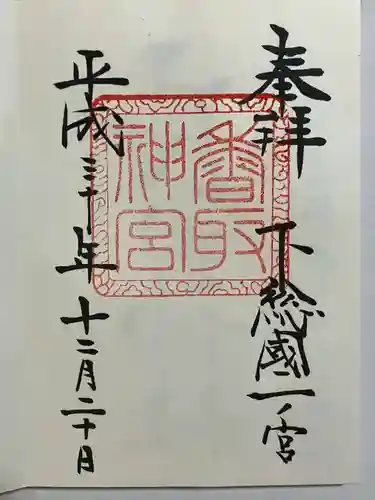 奉拝
下総國一ノ宮
香取神宮
平成三十年十二月二十日